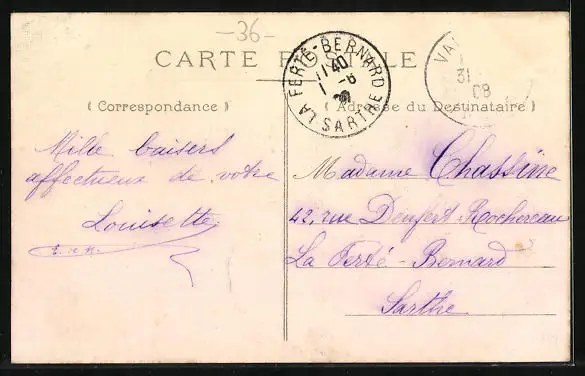 -36-
CARTE POSTALE
LA FERTÉ-BERNARD
11 40
1 -8
SARTHE
VA
31
08
( Correspondance )
( Adresse du Destinataire )
Mille baisers
affectueux de votre
Louisette
Madame Chassine
42, rue Denfert Rochereau
La Ferté-Bernard
Sarthe